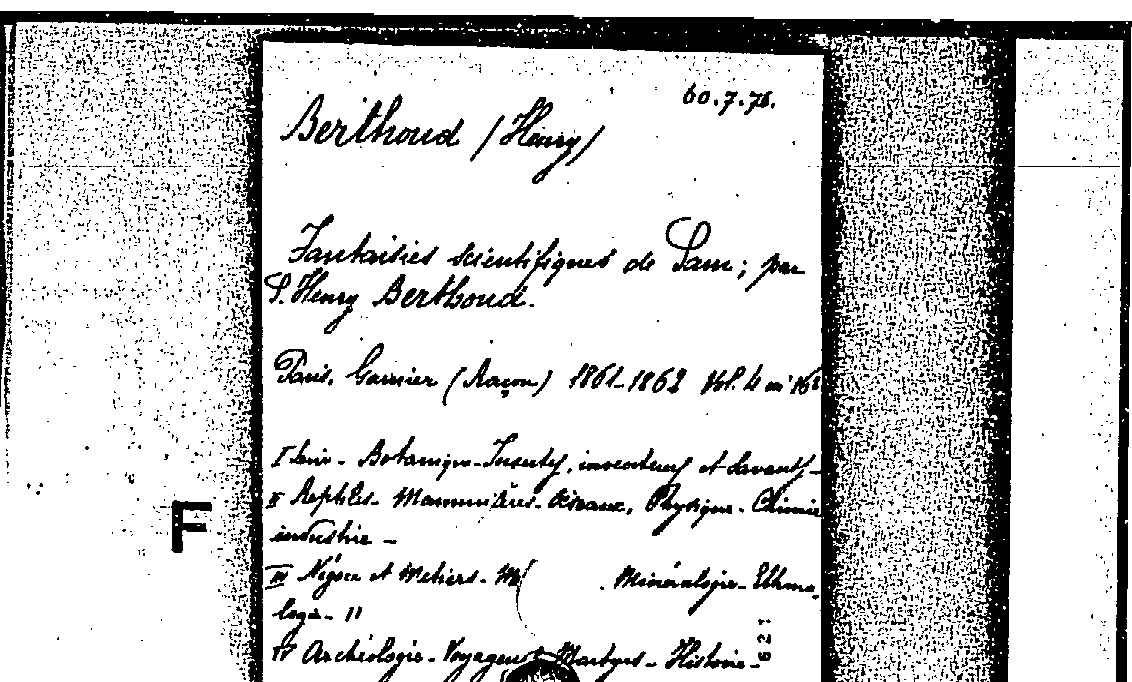 60.7.76.
Berthoud /Henry/
Fantaisies scientifiques de Sam; par
S. Henry Berthoud.
Paris, Garnier (Raçon) 1861-1862 Vol. 4 in 16º
I Série - Botanique - Insectes, inventeurs et Savants -
II Reptiles - Mammifères - Oiseaux, Physique - Chimie
industrie -
F
III Négoce et Metiers - Minéralogie - Ethno-
logie - 11
621
IV Archéologie - Voyageurs Martyrs - Histoire -